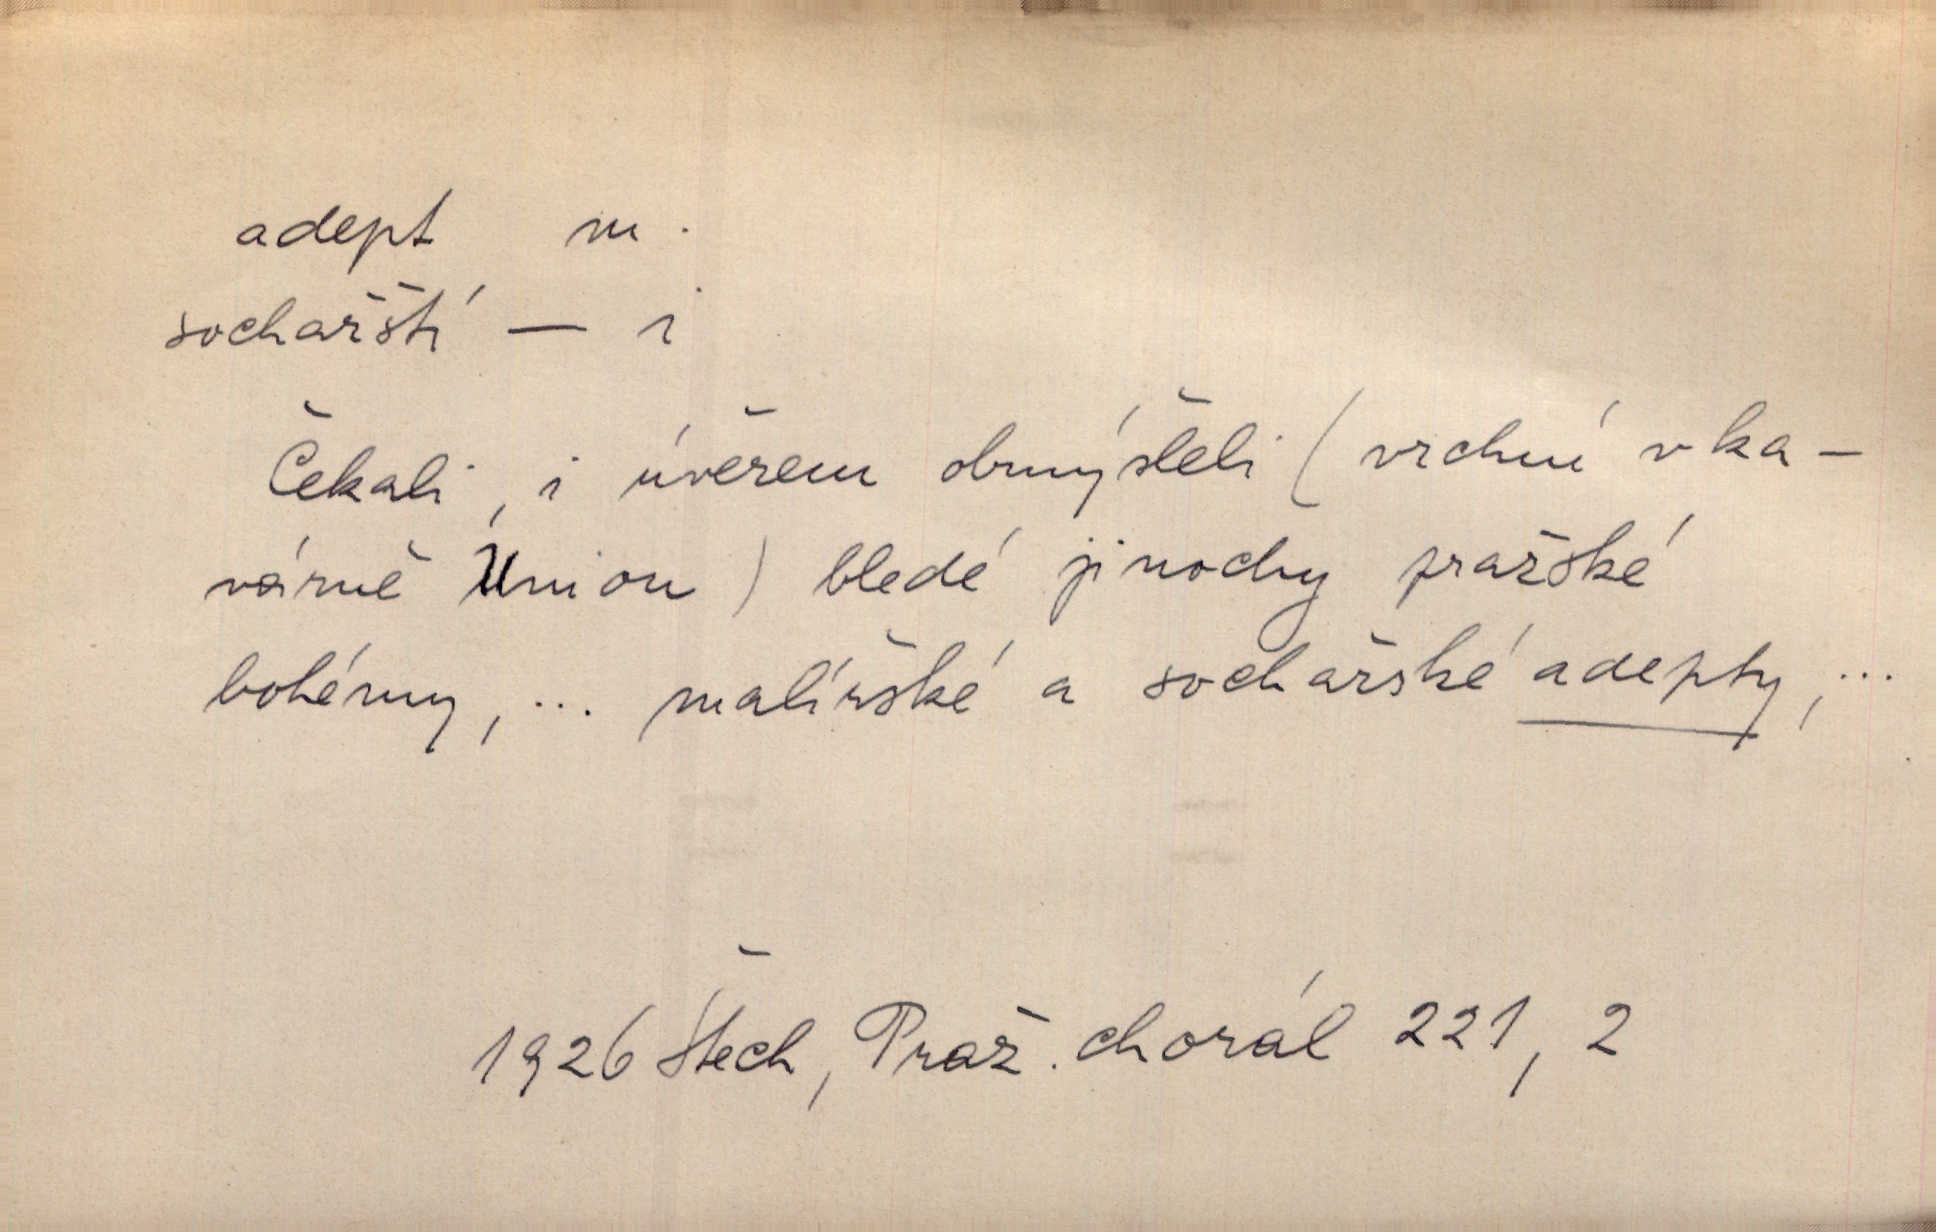 adept m.
sochařští — i
Čekali, i úvěrem obmýšleli (vrchní v ka-
várně Union) bledé jinochy pražské
bohémy, ... malířské a sochařské adepty, ...
1926 Štech, Praž. chorál 221, 2